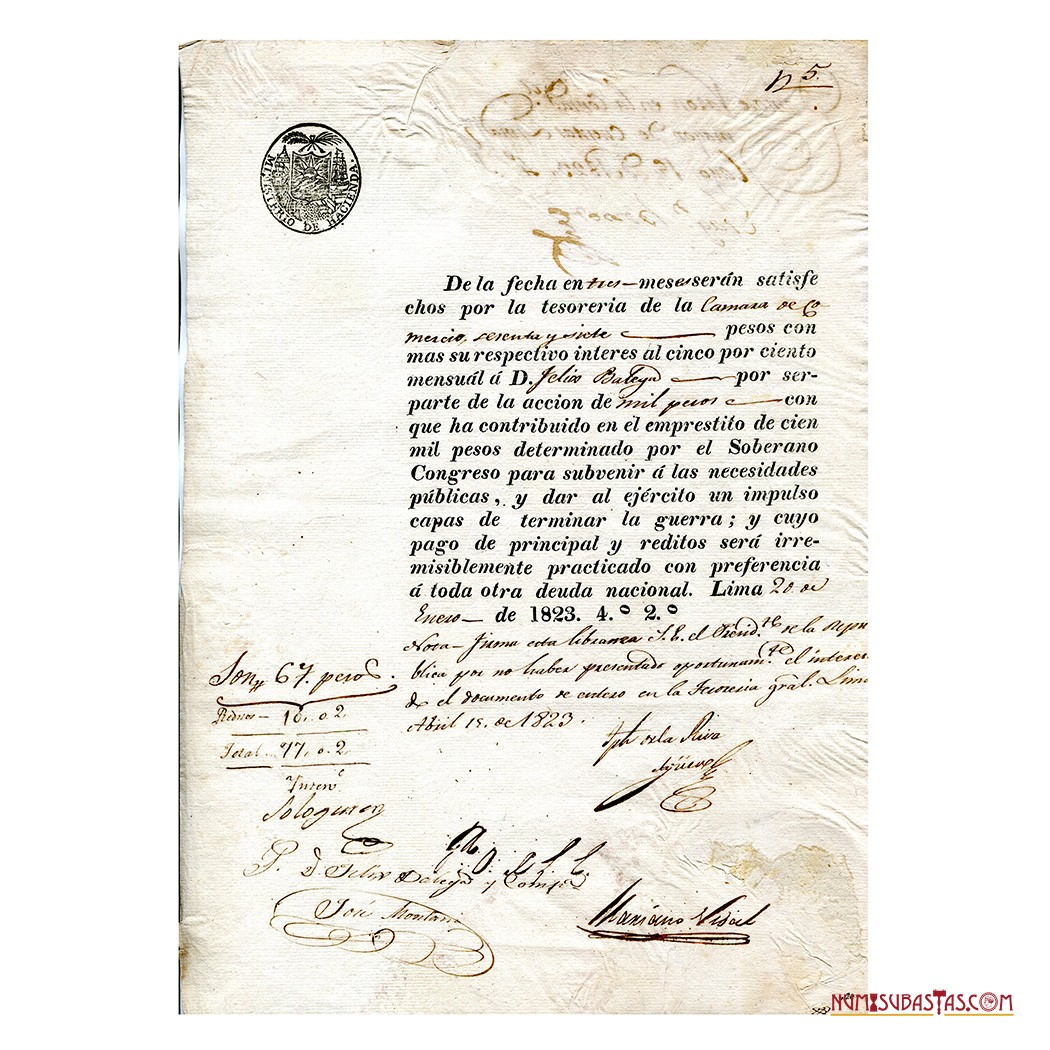 n 5.
MINISTERIO DE HACIENDA.
De la fecha en tres meses serán satisfe
chos por la tesoreria de la Camara de Co
mercio, sesenta y siete pesos con
mas su respectivo interes al cinco por ciento
mensuál á D. Felix Balega por ser-
parte de la accion de mil pesos con
que ha contribuido en el emprestito de cien
mil pesos determinado por el Soberano
Congreso para subvenir á las necesidades
públicas, y dar al ejército un impulso
capas de terminar la guerra; y cuyo
pago de principal y reditos será irre-
misiblemente practicado con preferencia
á toda otra deuda nacional. Lima 20 de
Enero de 1823. 4.º 2.º
Nota - Firma esta libranza S.E. el Presid.te de la Repu
blica por no haber presentado oportunam.te el interes
do el documento de entero en la Tesoreria gral. Lima
Abril 15. de 1823.
Son 67. pesos.
Reditos - 10. 0 2.
Total 77. 0. 2.
Jph de la Riva
Agüero
P. D. Felix Balega y Comp.
José Montani
Mariano Vidal
NUMISUBASTAS.COM